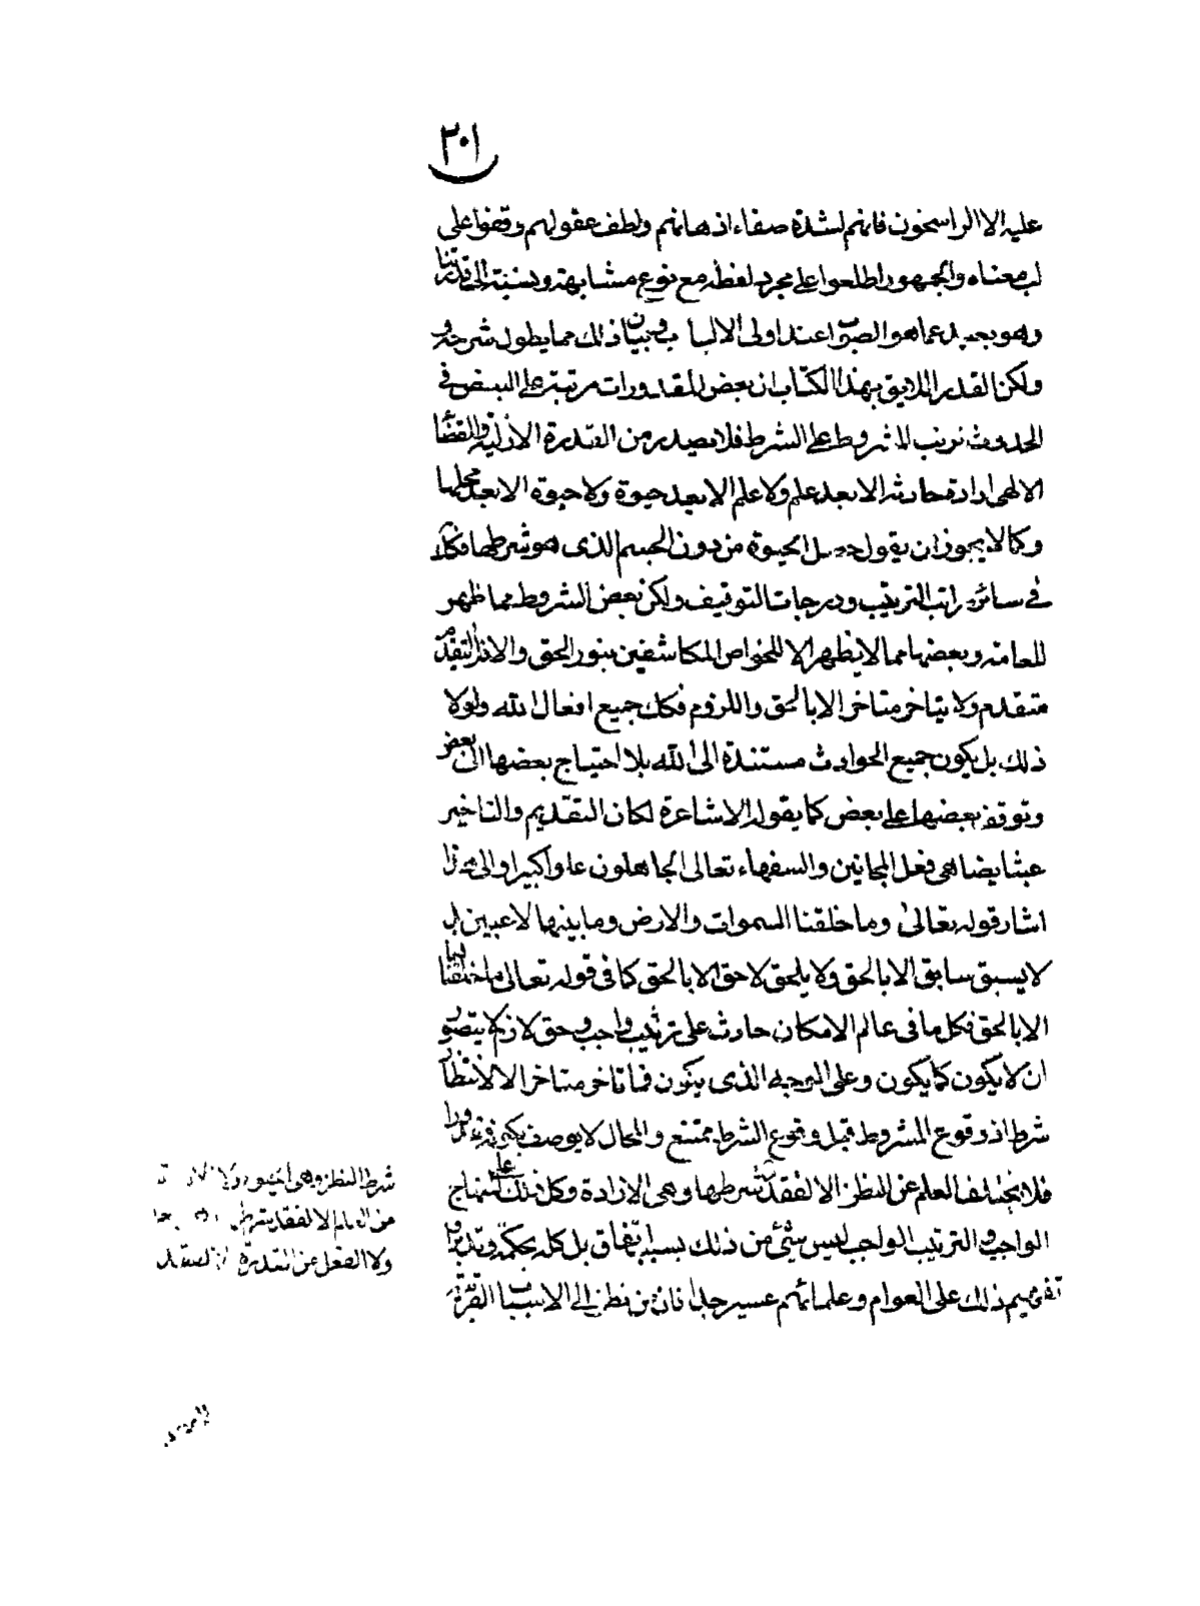 ٣٠١
عليه الا الراسخون فانهم لشدة صفاء اذهانهم ولطف عقولهم وقفوا على
لب معناه والجمهور اطلعوا على مجرد لفظه مع نوع مشابهة وبنسبته الى قدرتنا
وهو بعيد عما هو الصواب عند اولى الالباب وبيان ذلك مما يطول شرحه و
ولكن القدر اللايق بهذا الكتاب ان بعض المقدورات مرتبة على البعض فى
الحدوث ترتب المشروط على الشرط فلا يصدر من القدرة الازلية والقضاء
الالهى ارادة حادثة الا بعد علم ولا علم الا بعد حيوة ولا حيوة الا بعد محلها
وكما لا يجوز ان يقول حصل الحيوة من دون الجسم الذى هو شرطها فكك
فى سائر مراتب الترتيب ودرجات التوقيف ولكن بعض الشروط مما ظهر
للعامة وبعضها مما لا يظهر الا للخواص المكاشفين بنور الحق والا فلا يتقدم
متقدم ولا يتاخر متاخر الا بالحق واللزوم فكك جميع افعال الله ولولا
ذلك بل يكون جميع الحوادث مستندة الى الله بلا احتياج بعضها الى بعض
وتوقف بعضها على بعض كما يقوله الاشاعرة لكان التقديم والتاخير
عبثا يضاهى فعل المجانين والسفهاء تعالى الجاهلون علوا كبيرا والى هذا
اشار قوله تعالى وما خلقنا السموات والارض وما بينهما لاعبين بل
لا يسبق سابق الا بالحق ولا يلحق لاحق الا بالحق كما فى قوله تعالى ما خلقناهما
الا بالحق فكل ما فى عالم الامكان حادث على ترتيب واجب وحق لازم لا يتصور
ان لا يكون كما يكون وعلى الوجه الذى يتكون فما تاخر متاخر الا لانتظار
شرط اذ وقوع المشروط قبل وقوع الشرط ممتنع والمحال لا يوصف بكونه مقدورا
فلا يختلف العلم عن النظر الا لفقد شرطها وهى الارادة وكل ذلك على المنهاج
الواجب والترتيب الواجب ليس شئ من ذلك بسبب اتفاق بل كله بحكمة وتدبير و
تفهيم ذلك على العوام وعلمائهم عسير جدا فان من نظر الى الاسباب القريبة
شرط النظر وهى الحيوة ولا
من العلم الا لفقد شرطها
ولا الفعل عن القدرة